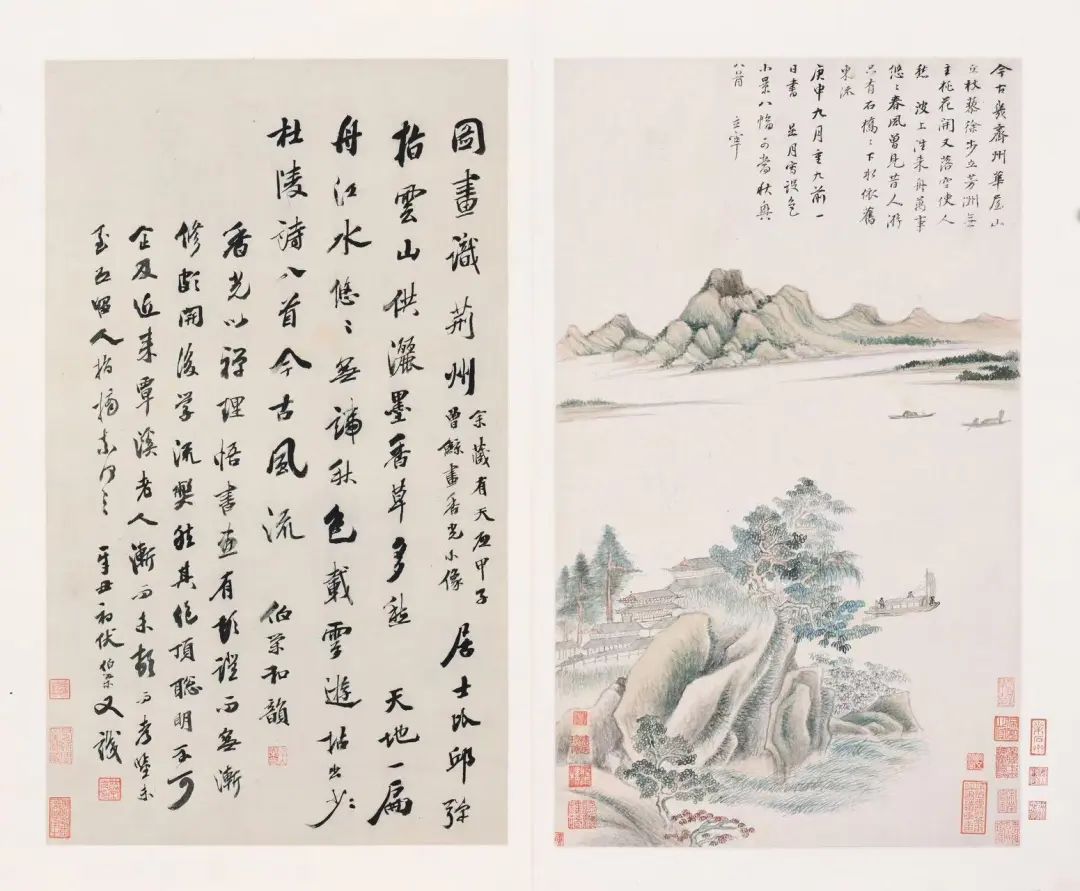 今古幾齊州華屋山
丘杖藜徐步立芳洲無
主桃花開又落空使人
愁 波上往來舟萬事
悠〻春風曾見昔人游
只有石橋〻下水依舊
東流
庚申九月重九前一
日書 是月寫設色
小景八幅可當秋興
八首 玄宰
圖畫識荊州
余藏有天啟甲子
曾鯨畫香光小像
居士比邱彈
指雲山供灑墨香草多愁 天地一扁
舟江水悠〻無端秋色載雲遊拈出少
杜陵詩八首今古風流 伯榮和韻
香光以禪理悟書畫有頓證而無漸
修頗開後學流弊然其絕頂聰明不可
企及近來覃溪老人漸而未頓而考證亦
人指摘 辛丑初伏伯榮又識